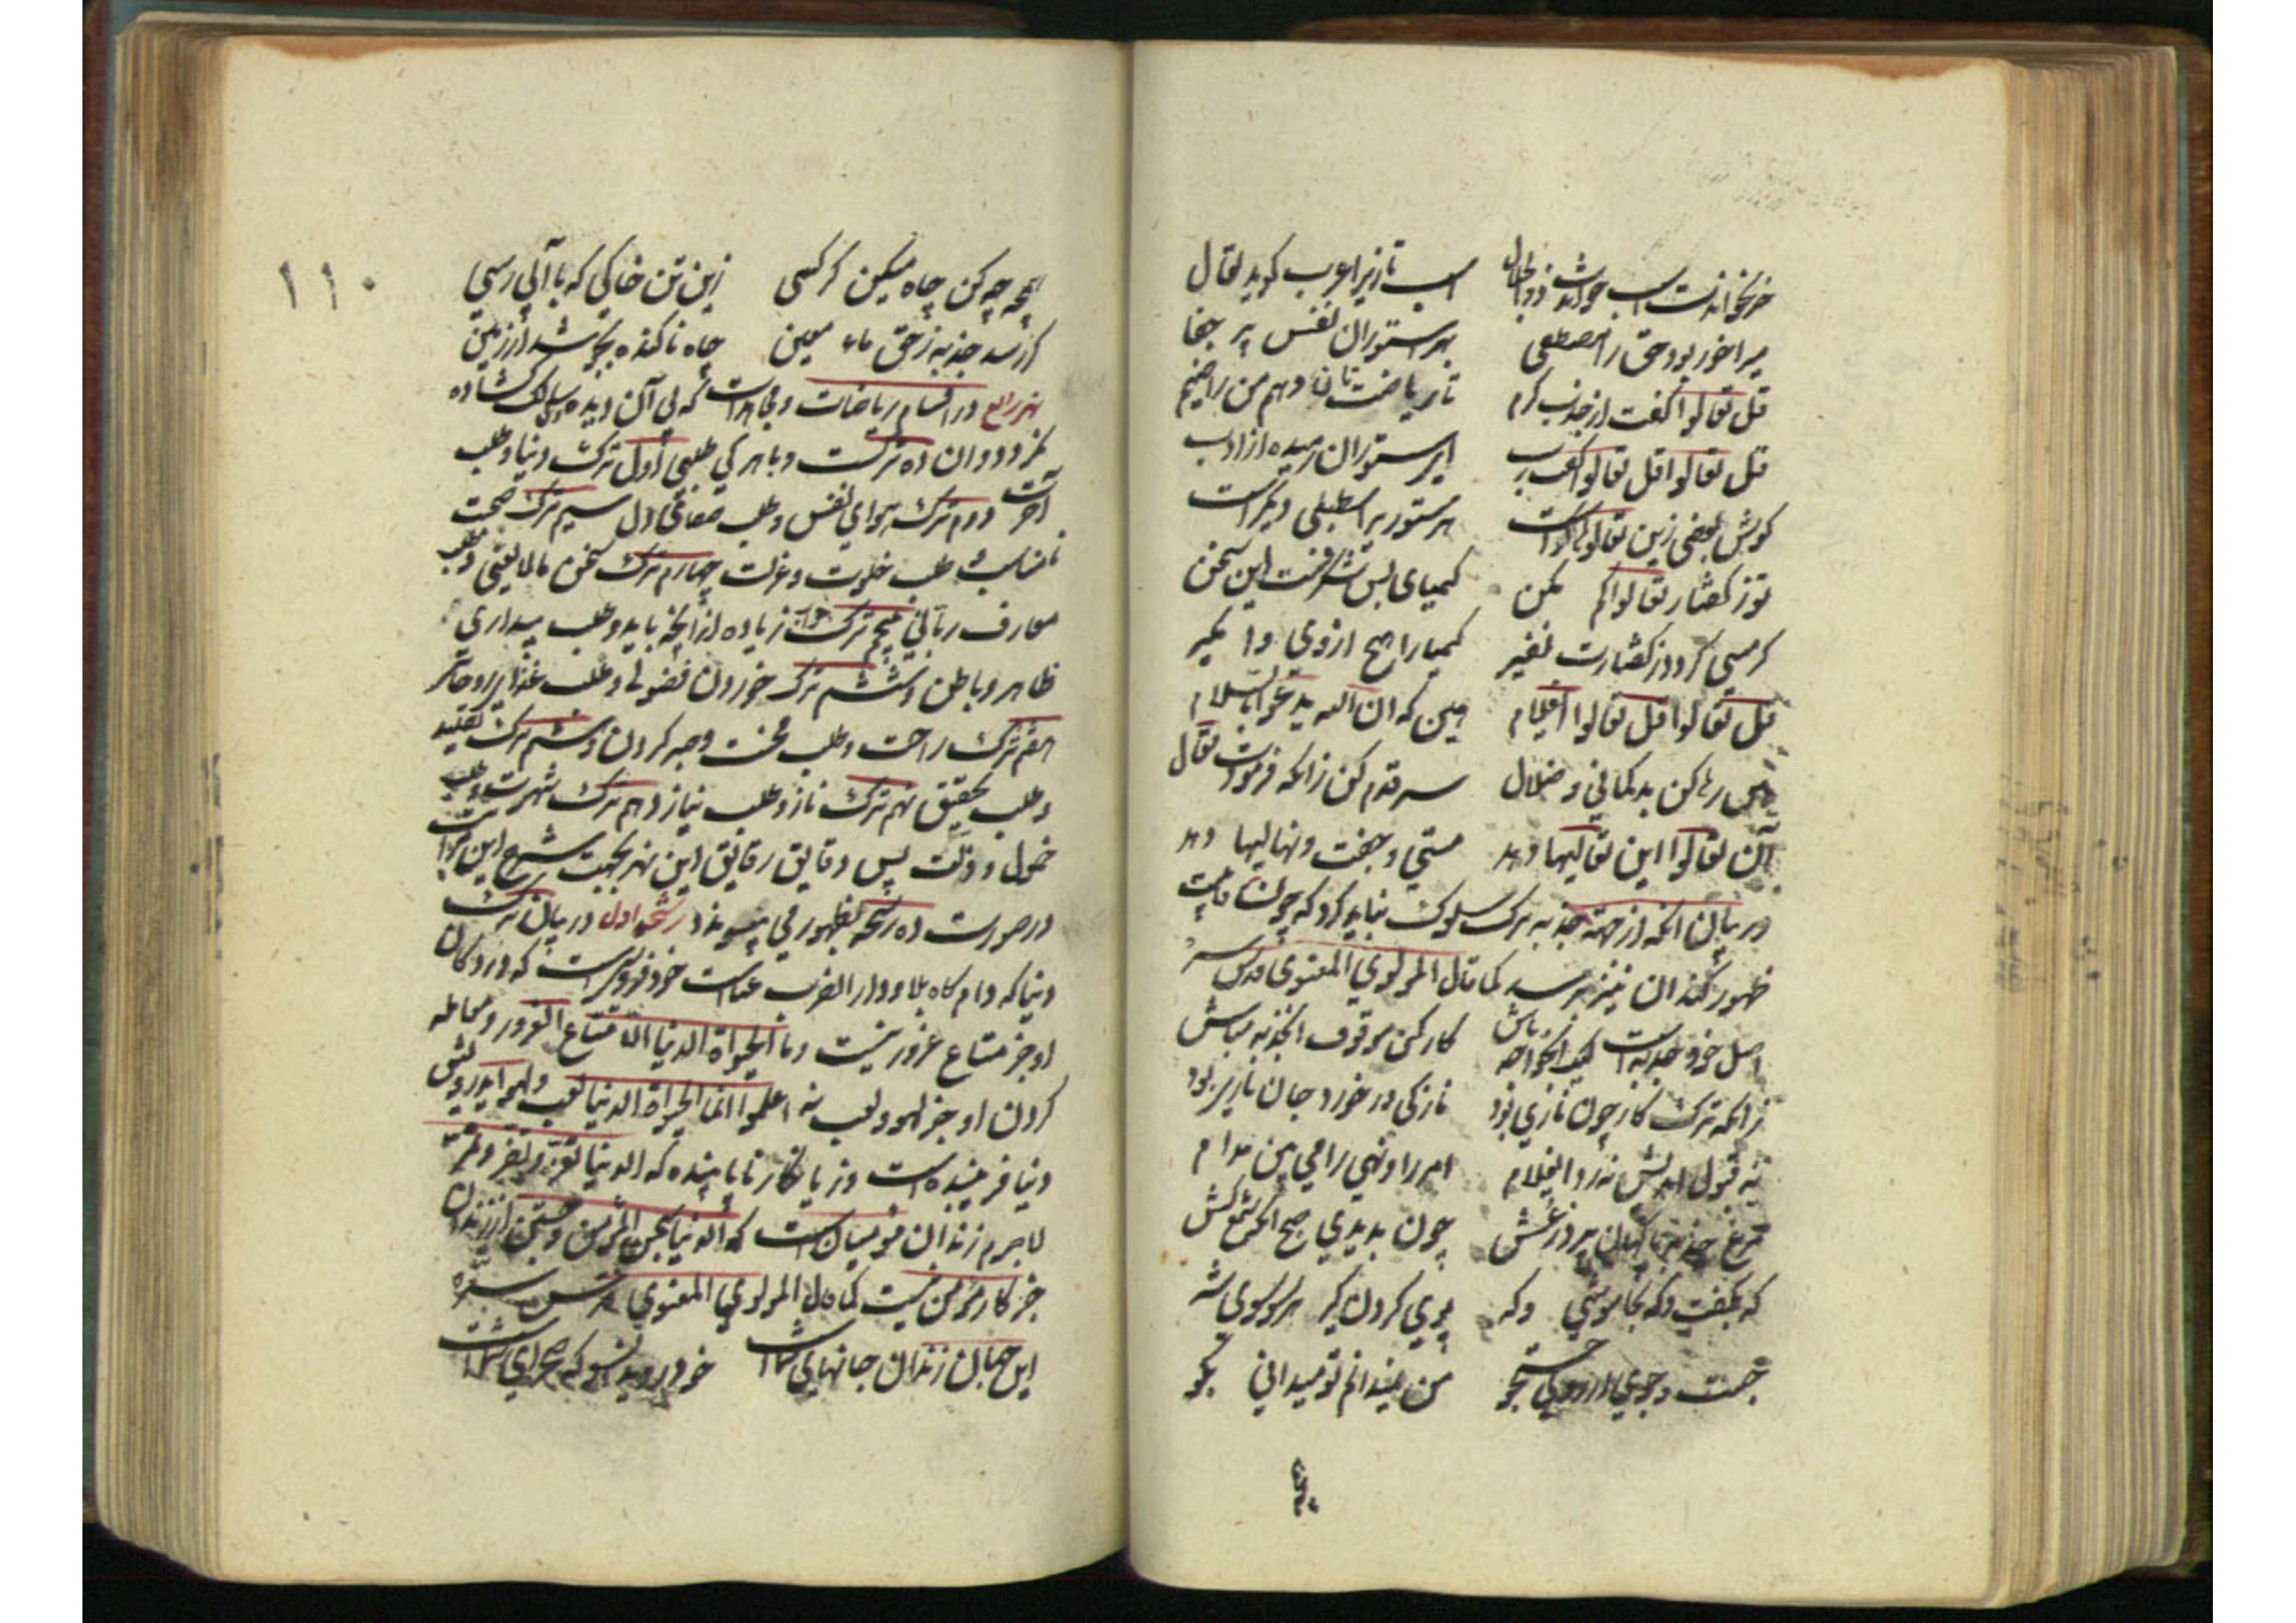 خر نخواندت اسب خواندت ذوالجلال اسب تازیرا عرب کوید تعال
میراخور بود حق را مصطفی بهر ستوران نفس پر جفا
قل تعالوا کفت از جذب کرم تا ریاضتتان دهم من رایضم
قل تعالوا قل تعالوا کفت رب ای ستوران رمیده از ادب
کوش بعضی زین تعالوها کرست هر ستور یرا اسطبلی دیکرست
تو ز کفتار تعالوا کم مکن کیمیای بس شکرفست این سخن
کر مسی کردد ز کفتارت نفیر کیمیا را هیچ از وی وا مکیر
قل تعالوا قل تعالوا ای غلام هین که ان الله یدعوا بالسلام
رها کن بدکمانی و ضلال سر قدم کن زانکه فرمودت تعال
آن تعالوا این تعالیها دهد مستی و جفت و نهالیها دهد
در بیان انکه از جهة جذبه ترک سلوک نباید کرد که چون
ظهور کند ان نیز برسد کما قال المولوی المعنوی قدس سره
اصل خود جذبه است لیک ای خواجه تاش کار کن موقوف ان جذبه مباش
زانکه ترک کار چون نازی بود نازکی در خورد جان بازی بود
نه قبول اندیش نه رد ای غلام امر را و نهی را می بین مدام
مرغ جذبه ناکهان پرد ز عش چون بدیدی صبح انکه شمع کش
من نمیدانم تو میدانی بکو
۱۱۰
همچه چه کن چاه میکن کر کسی زین تن خاکی که با آبی رسی
کر رسد جذبه ز حق ماء معین چاه ناکنده بجوشد از زمین
نهر رابع در اقسام ریاضات و مجاهدات که بی آن دیده سالک کشاده
نکردد و ان ده ترکست و با هر کی طلبی اول ترک دنیا و طلب
آخرت دوم ترک هوای نفس و طلب صفای دل سیم ترک صحبت
نامناسب و طلب خلوت و عزلت چهارم ترک سخن مالایعنی و طلب
معارف ربانی پنجم ترک خواب زیاده از انچه باید و طلب بیداری
ظاهر و باطن و ششم ترک خوردن فضولی و طلب غذای روحانی
هفتم ترک راحت و طلب محنت و صبر کردن و هشتم ترک تقلید
و طلب تحقیق نهم ترک ناز و طلب نیاز دهم ترک شهرت و طلب
خمول و ذلت پس دقایق رقایق این نهر بجهت شرح این مراتب
در صورت ده رشحه بظهور می پیوندد رشحه اول در بیان ترک
دنیا که دام کاه بلا و دار الضرب عناست خود فروشیست که در دکان
او جز متاع غرور نیست وما الحیوة الدنیا الا متاع الغرور و معامله
کردن او جز لهو و لعب نه اعلموا انما الحیوة الدنیا لعب ولهو
دنیا فریبنده است و زیانکار ناپاینده که الدنیا تغر وتضر وتمر
لاجرم زندان مؤمنان است که الدنیا سجن المؤمن و جستن از زندان
جز کار مؤمن نیست کما قال المولوی المعنوی قدس سره
این جهان زندان جانهای شماست خود روید انسو که صحرای شماست